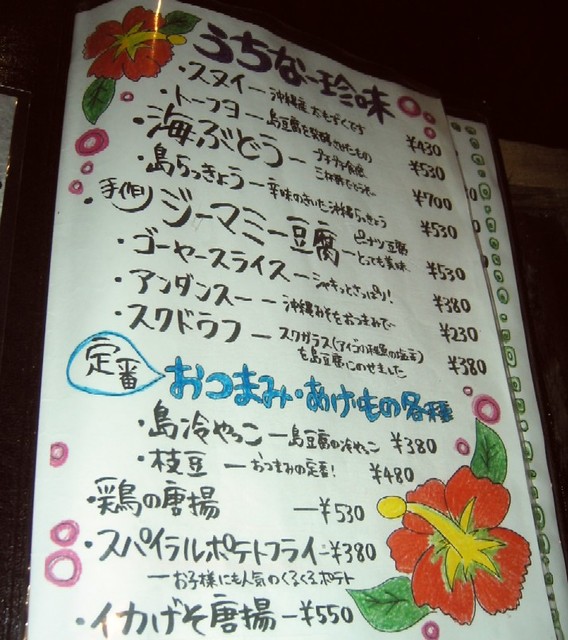 うちなー珍味
・スヌイ—沖縄産太もずくです ¥430
・トーフヨー島豆腐を発酵させたもの ¥530
・海ぶどう—プチプチ食感 三杯酢でどうぞ〜 ¥700
・島らっきょう—辛味のきいた沖縄らっきょう ¥530
・手作り ジーマミー豆腐—ピーナツ豆腐 とっても美味 ¥530
・ゴーヤースライス—シャキッとさっぱり! ¥380
・アンダンスー—沖縄みそをおつまみで〜 ¥230
・スクドウフ—スクガラス(アイゴの稚魚の塩辛)
を島豆腐にのせました ¥380
定番 おつまみ・あげもの各種
・島冷やっこ—島豆腐の冷やっこ ¥380
・枝豆—おつまみの定番! ¥480
・鶏の唐揚—¥530
・スパイラルポテトフライ—¥380
—お子様にも人気のくるくるポテト
・イカげそ唐揚—¥550